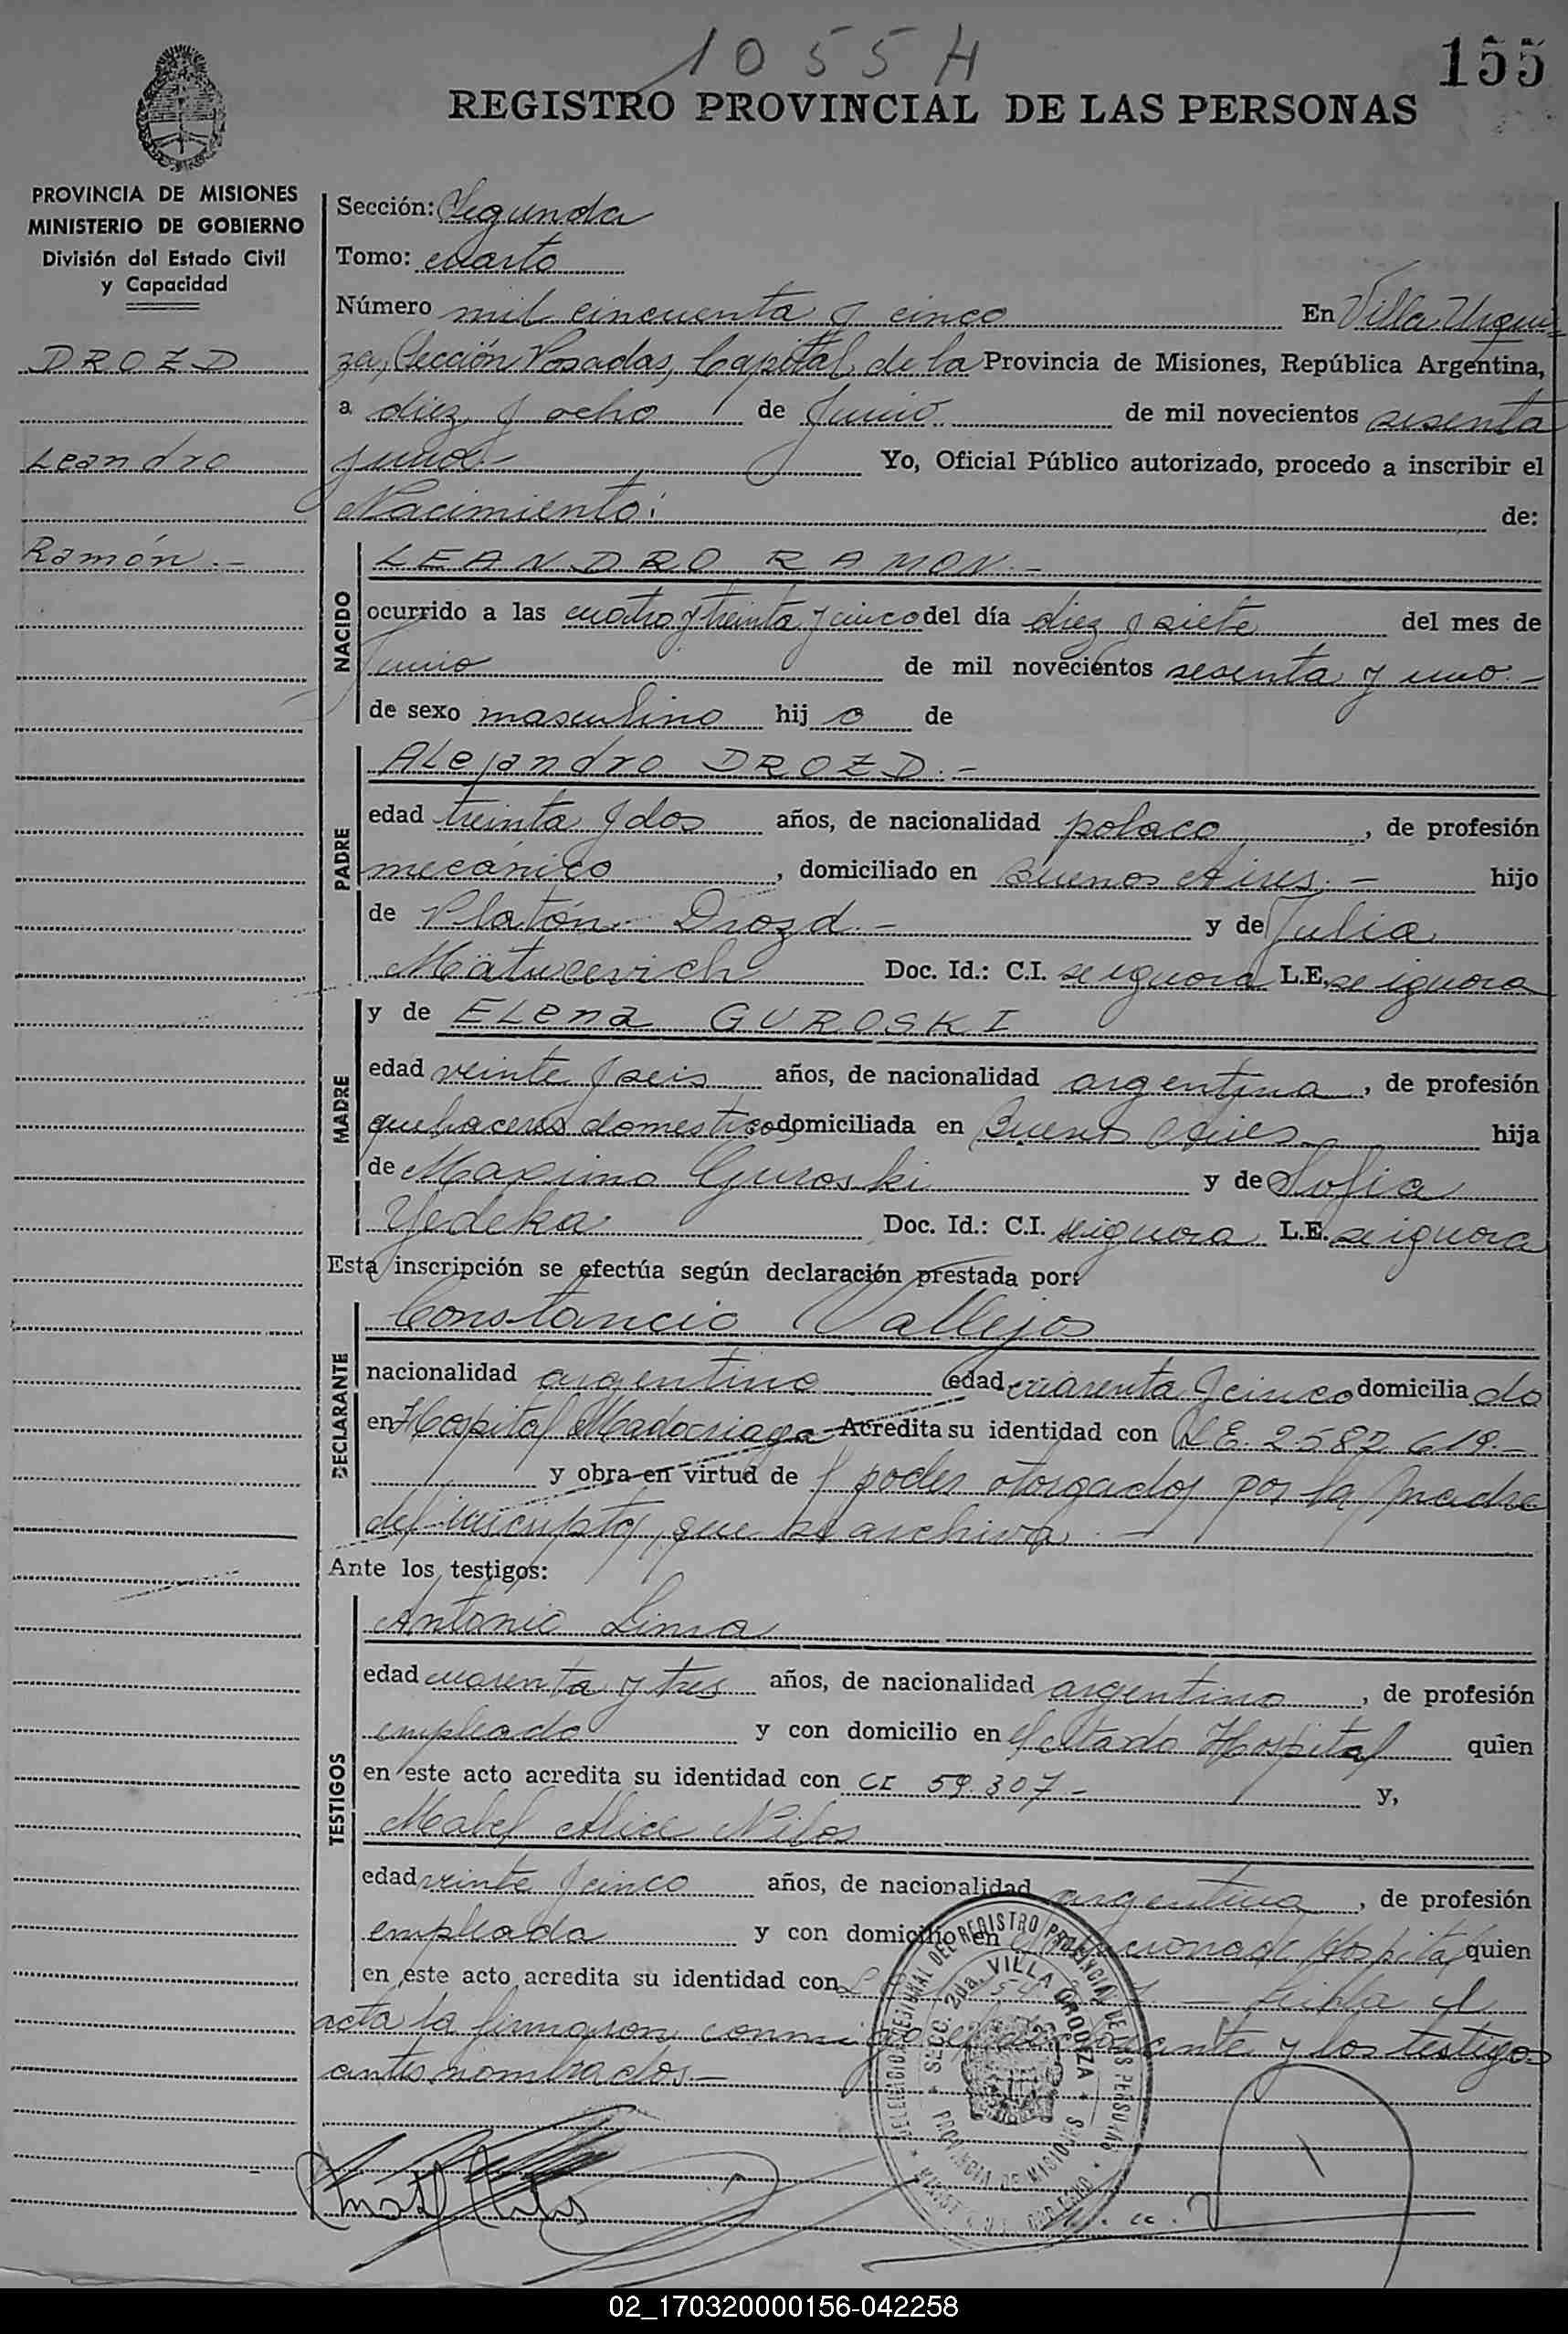 1055 H
155
REGISTRO PROVINCIAL DE LAS PERSONAS
PROVINCIA DE MISIONES
MINISTERIO DE GOBIERNO
División del Estado Civil
y Capacidad
DROZD
Leandro
Ramón.-
Sección: Segunda
Tomo: cuarto
Número mil cincuenta y cinco En Villa Urqui
za, Sección Posadas, Capital de la Provincia de Misiones, República Argentina,
a diez y ocho de Junio de mil novecientos sesenta
y uno.- Yo, Oficial Público autorizado, procedo a inscribir el
Nacimiento: de:
NACIDO
LEANDRO RAMON.-
ocurrido a las cuatro y treinta y cinco del día diez y siete del mes de
Junio de mil novecientos sesenta y uno.-
de sexo masculino hij o de
PADRE
Alejandro DROZD.-
edad treinta y dos años, de nacionalidad polaco, de profesión
mecánico, domiciliado en Buenos Aires.- hijo
de Platón Drozd.- y de Julia
Matucevich Doc. Id.: C.I. se ignora L.E. se ignora
MADRE
y de Elena GUROSKI
edad veinte y seis años, de nacionalidad argentina, de profesión
quehaceres domesticos domiciliada en Buenos Aires- hija
de Maximo Guroski y de Sofia
Yedeka Doc. Id.: C.I. se ignora L.E. se ignora
Esta inscripción se efectúa según declaración prestada por:
DECLARANTE
Constancio Vallejos
nacionalidad argentino edad cuarenta y cinco domicilia do
en Hospital Madariaga Acredita su identidad con L.E. 2.582.619.-
y obra en virtud de poder otorgado por la madre
del inscripto, que se archiva.-
Ante los testigos:
TESTIGOS
Antonio Lima
edad cuarenta y tres años, de nacionalidad argentino, de profesión
empleado y con domicilio en el citado Hospital quien
en este acto acredita su identidad con CI 59.307- y,
Mabel Alice
edad veinte y cinco años, de nacionalidad argentina, de profesión
empleada y con domicilio en el mencionado Hospital quien
en este acto acredita su identidad con - Leida el
acta la firmaron conmigo el declarante y los testigos
antes nombrados.-
DELEGACION SECCIONAL DEL REGISTRO PROVINCIAL DE LAS PERSONAS
SECC. 2da. VILLA URQUIZA
PROVINCIA DE MISIONES
02_170320000156-042258